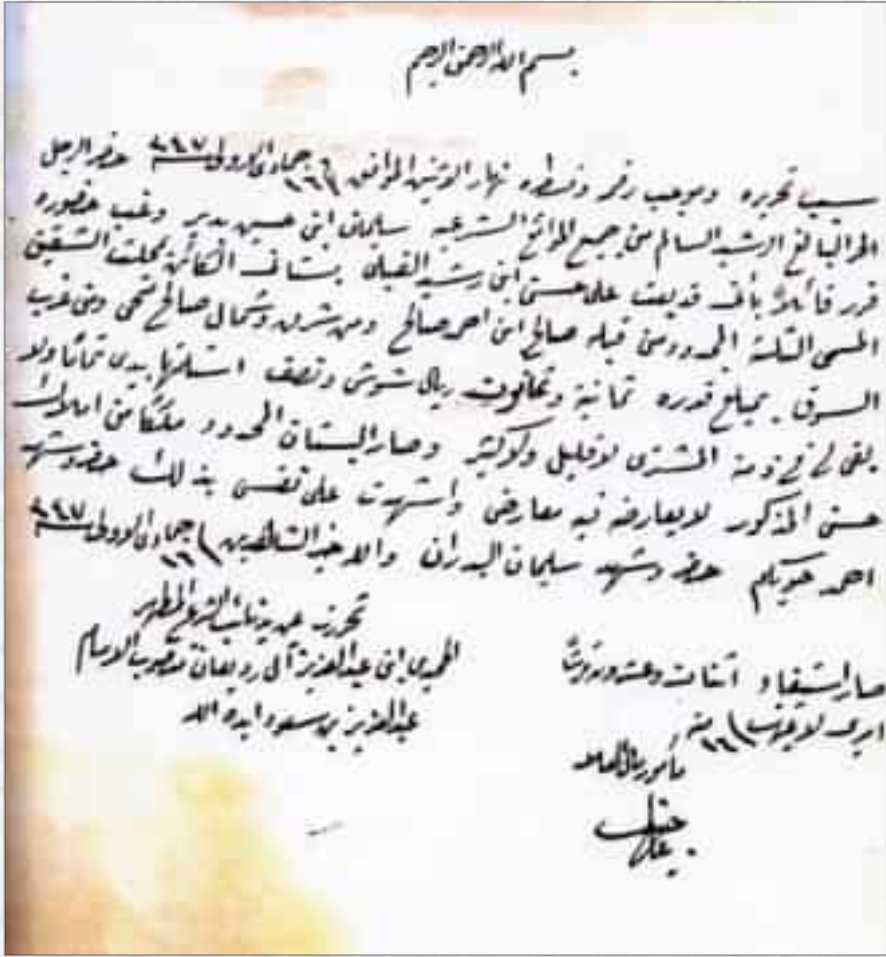 بسم الله الرحمن الرحيم
سبب تحريره وموجب رقم وتسطيره نهار الاثنين الموافق ١٦ جماد الاولى حضر الرجل
الحر البالغ الرشيد السالم من جميع الموانع الشرعيه سليمان ابن حسين بدير وغب حضوره
قرر قائلاً بأني قد بعت على حسن ابن رشيد القبلي بستاني الكائن بمحلت الشقيق
المسمى الثلثة المحدود من قبله صالح ابن احمد صالح ومن شرق وشمال صالح ضحى ومن غرب
السوق بمبلغ قدره ثمانية وثمانون ريال شوشي ونصف استلمتها بيدي تماماً ولا
بقى لي في ذمة المشتري لا قليل ولا كثير وصار البستان المحدود ملكاً من املاك
حسن المذكور لا يعارضه فيه معارض واشهدت على نفسي بذلك حضر وشهد
احمد حويكم حضر وشهد سليمان البدران والله خير الشاهدين ١٦ جماد الاولى
تحررت عن يد نائب الشرع المطهر
الحميدي ابن عبدالعزيز آل رديعان منصوب الامام
عبدالعزيز بن سعود ايده الله
صار استيفاء اثنان وعشرون قرشاً
اميري لا غير ١٦ منه
مأمور مال العلا